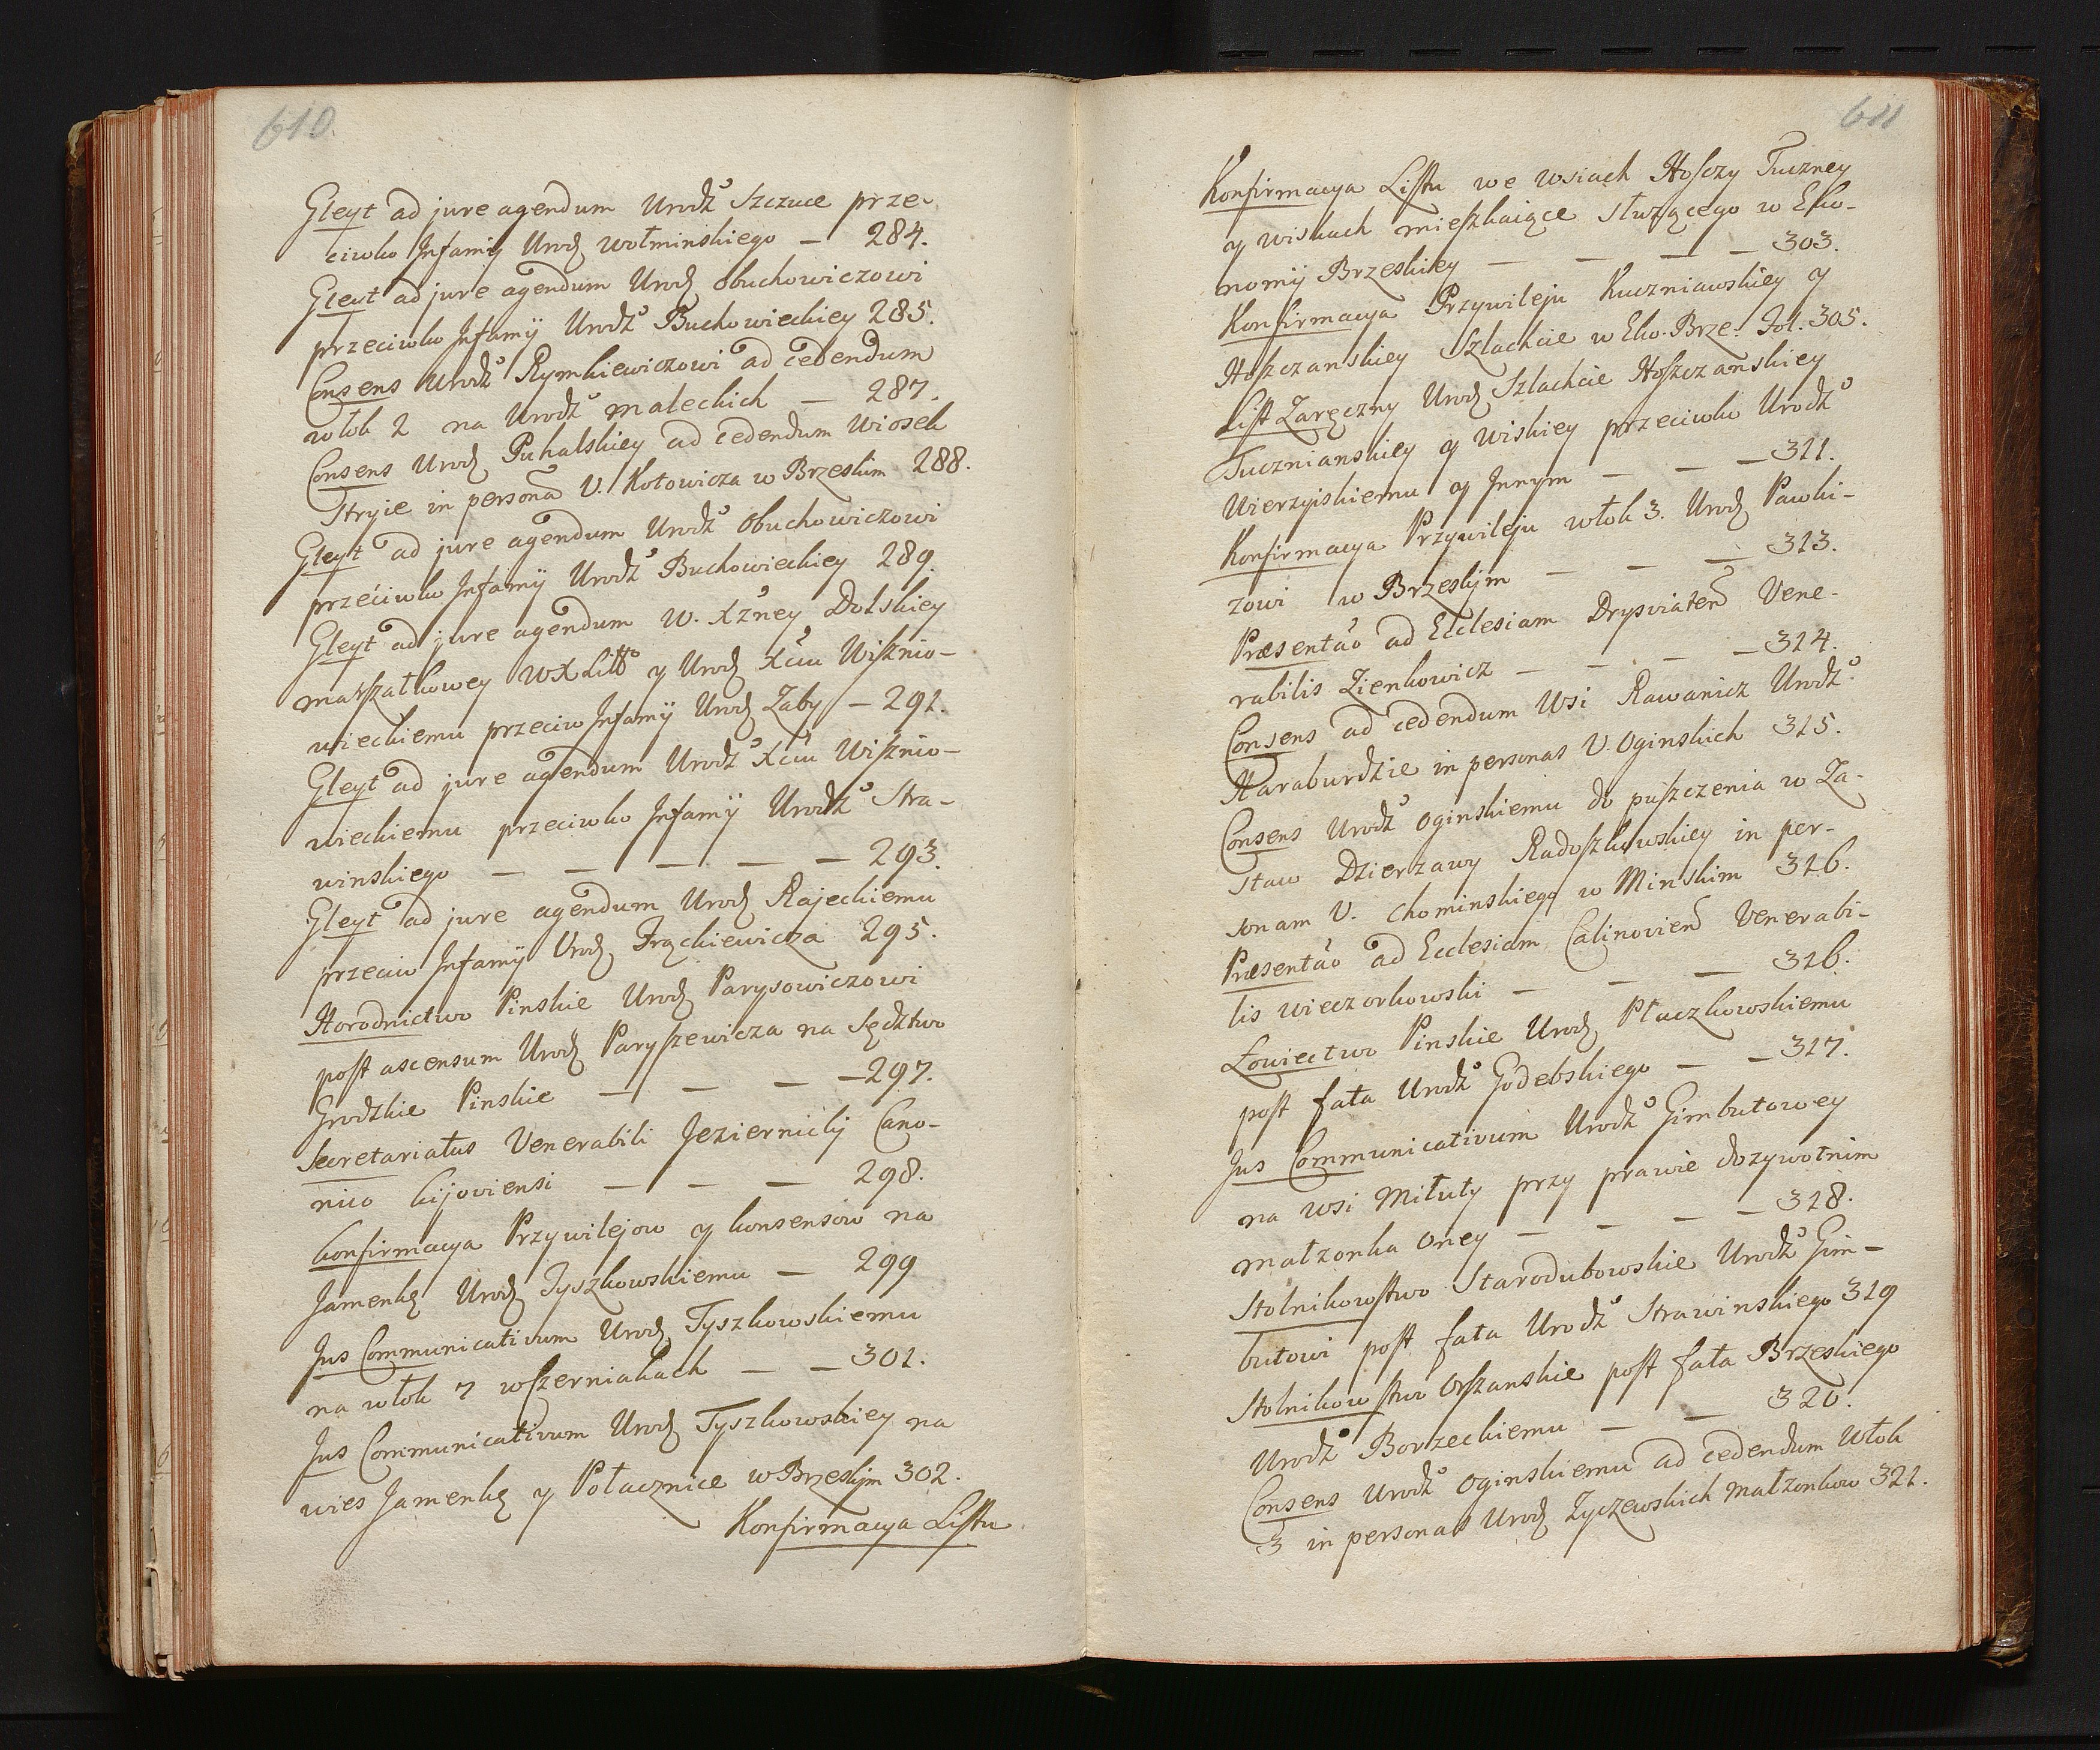 610.
Gleyt ad jure agendum Urodź Szczuce prze-
ciwko Infamij Urodz wołminskiego — 284.
Gleyt ad jure agendum Urodz Obuchowiczowi
przeciwko Infamij Urodź Buchowieckiey 285.
Consens Urodź Rymkiewiczowi ad cedendum
włok 2 na Urodź maleckich — 287.
Consens Urodz Puhalskiey ad cedendum Wiosek
Stryie in persona V. Kotowicza w Brzeskim 288.
Gleyt ad jure agendum Urodź Obuchowiczowi
przeciwko Infamij Urodź Buchowieckiey 289.
Gleyt ad jure agendum W. Xźney Dolskiey
marszałkowey WXLitt° y Urodz Xciu Wisznio-
wieckiemu przeciw Infamij Urodz Zaby — 291.
Gleyt ad jure agendum Urodź Xciu Wisznio-
wieckiemu przeciwko Infamij Urodź Stra-
winskiego — — — — — 293.
Gleyt ad jure agendum Urodz Rajeckiemu
przeciw Infamij Urodz Frąckiewicza 295.
Horodnictwo Pinskie Urodz Parysowiczowi
post ascensum Urodz Paryszewicza na Sędztwo
Grodzkie Pinskie — — — — 297.
Secretariatus Venerabili Jeziernicky Cano-
nico kijoviensi — — — 298.
Konfirmacya Przywilejow y konsensow na
Jamenkę Urodz Tyszkowskiemu — 299
Jus Communicativum Urodz Tyszkowskiemu
na włok 7 w Czerniakach — — 301.
Jus Communicativum Urodz Tyszkowskiey na
wies Jamenkę y Połacznice w Brzeskjm 302.
Konfirmacya Listu
611
Konfirmacya Listu we wsiach Hoszy Tuczney
y wiskach mieszkaiące służącego w Eko-
nomij Brzeskiey — — — — 303.
Konfirmacya Przywileju Kuczniawskiey y
Hoszczanskiey Szlachcie w Eko. Brze. Fol. 305.
List Zaręczny Urodz Szlachcie Hoszczanskiey
Tucznianskiey y Wiskiey przeciwko Urodź
Wierzyiskiemu y Innym — — — 311.
Konfirmacya Przywileju włok 3. Urodz Pawki-
zowi w Brzeskjm — — — 313.
Præsentao ad Ecclesiam Drysviaten Vene-
rabilis Zienkowicz — — — — 314.
Consens ad cedendum Wsi Rawanicz Urodź
Haraburdzie in personas V. Oginskich 315.
Consens Urodź Oginskiemu do puszczenia w Za-
staw Dzierzawy Radoszkowskiey in per-
sonam V. Chominskiego w Minskim 316.
Præsentao ad Ecclesiam Calinovien Venerabi-
lis wieczorkowski — — — 316.
Łowiectwo Pinskie Urodz Płaczkowskiemu
post fata Urodź Godebskiego — — 317.
Jus Communicativum Urodź Gimbutowey
na wsi Miłuty przy prawie dozywotnim
małzonka Oney — — — — 318.
Stolnikowstwo Starodubowskie Urodź Gim-
butowi post fata Urodź Strawinskiego 319
Stolnikowstwo Orszanskie post fata Brzeskiego
Urodź Borzeckiemu — — 320.
Consens Urodź Oginskiemu ad cedendum Włok
3 in personas Urodz Zyczewskich Małzonkow 321.